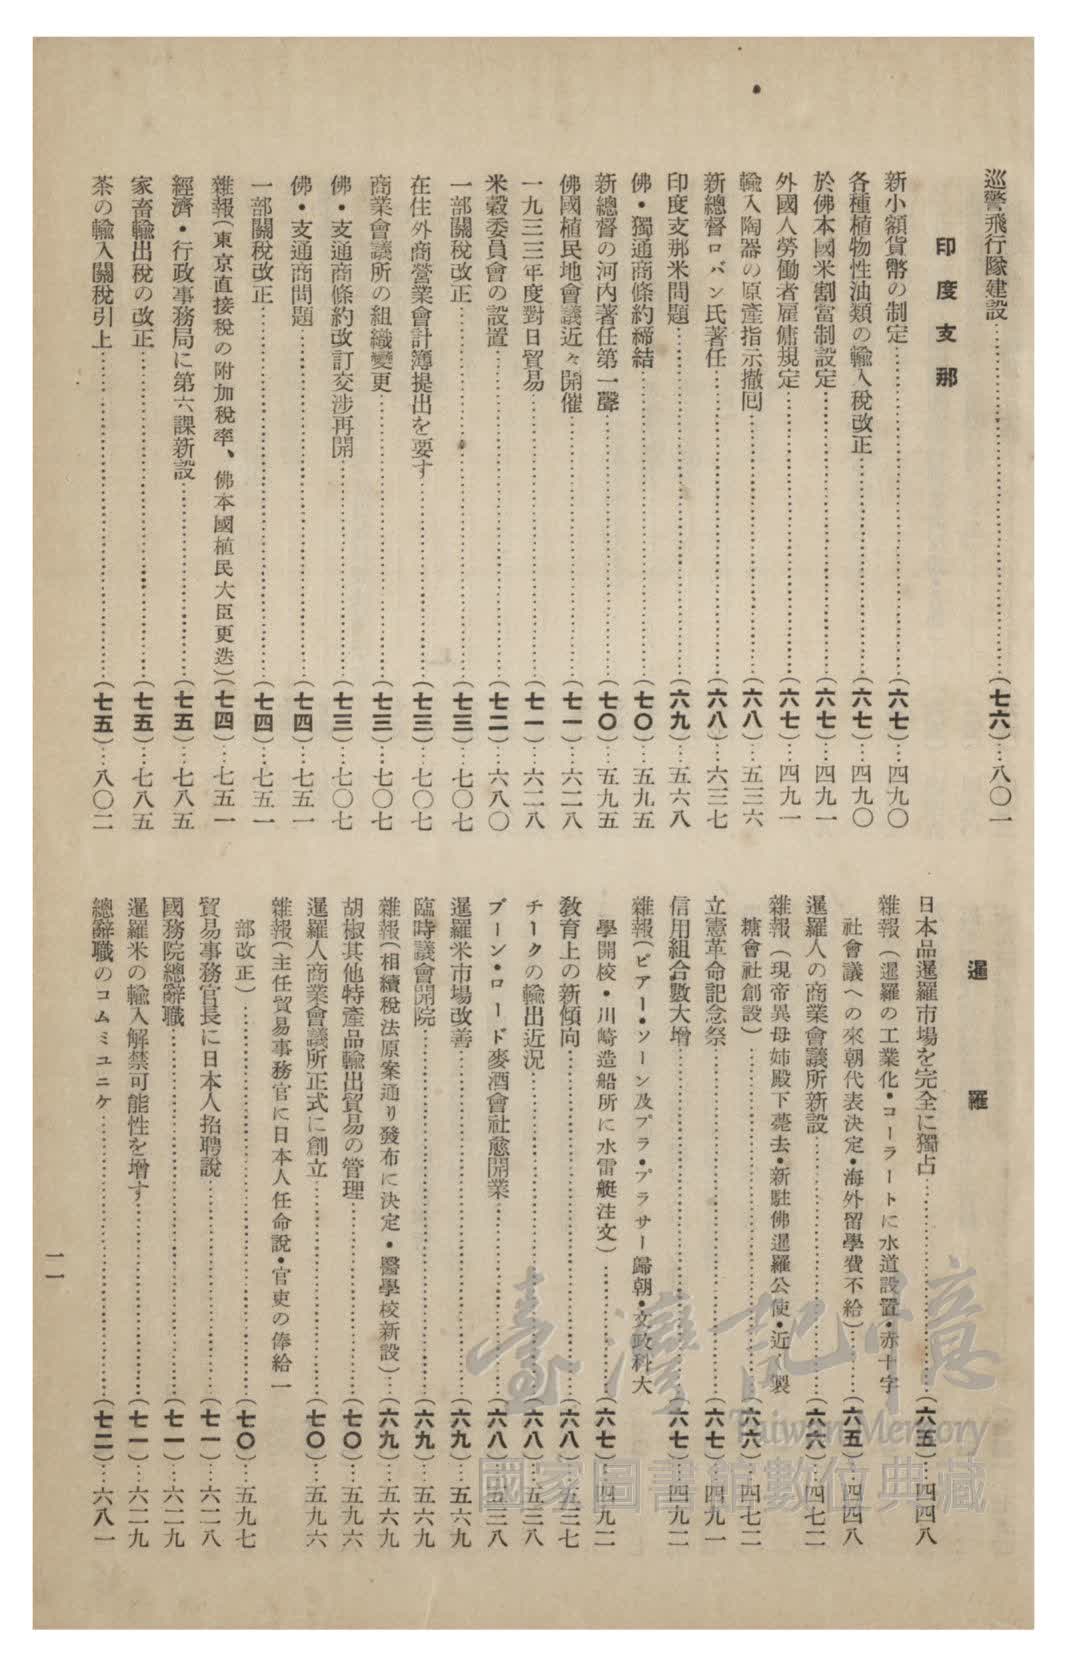 巡警飛行隊建設……(七六)…八〇一
印度支那
新小額貨幣の制定……(六七)…四九〇
各種植物性油類の輸入稅改正……(六七)…四九〇
於佛本國米割當制設定……(六七)…四九一
外國人勞働者雇傭規定……(六七)…四九一
輸入陶器の原產指示撤囘……(六八)…五三六
新總督ロバン氏著任……(六八)…六三七
印度支那米問題……(六九)…五六八
佛・獨通商條約締結……(七〇)…五九五
新總督の河內著任第一聲……(七〇)…五九五
佛國植民地會議近々開催……(七一)…六二八
一九三三年度對日貿易……(七一)…六二八
米穀委員會の設置……(七二)…六八〇
一部關稅改正……(七三)…七〇七
在住外商營業會計簿提出を要す……(七三)…七〇七
商業會議所の組織變更……(七三)…七〇七
佛・支通商條約改訂交涉再開……(七三)…七〇七
佛・支通商問題……(七四)…七五一
一部關稅改正……(七四)…七五一
雜報(東京直接稅の附加稅率、佛本國植民大臣更迭)(七四)…七五一
經濟・行政事務局に第六課新設……(七五)…七八五
家畜輸出稅の改正……(七五)…七八五
茶の輸入關稅引上……(七五)…八〇二
暹羅
日本品暹羅市場を完全に獨占……(六五)…四四八
雜報(暹羅の工業化・コーラートに水道設置・赤十字
社會議への來朝代表決定・海外留學費不給)……(六五)…四四八
暹羅人の商業會議所新設……(六六)…四七二
雜報(現帝異母姉殿下薨去・新駐佛暹羅公使・近く製
糖會社創設)……(六六)…四七二
立憲革命記念祭……(六七)…四九一
信用組合數大增……(六七)…四九二
雜報(ピアー・ソーン及プラ・プラサー歸朝・文政科大
學開校・川崎造船所に水雷艇注文)……(六七)…四九二
敎育上の新傾向……(六八)…五三七
チークの輸出近況……(六八)…五三八
ブーン・ロード麥酒會社愈開業……(六八)…五三八
暹羅米市場改善……(六九)…五六九
臨時議會開院……(六九)…五六九
雜報(相續稅法原案通り發布に決定・醫學校新設)…(六九)…五六九
胡椒其他特產品輸出貿易の管理……(七〇)…五九六
暹羅人商業會議所正式に創立……(七〇)…五九六
雜報(主任貿易事務官に日本人任命說・官吏の俸給一
部改正)……(七〇)…五九七
貿易事務官長に日本人招聘說……(七一)…六二八
國務院總辭職……(七一)…六二九
暹羅米の輸入解禁可能性を增す……(七一)…六二九
總辭職のコムミユニケ……(七二)…六八一
一一
臺灣記憶
Taiwan Memory
國家圖書館數位典藏